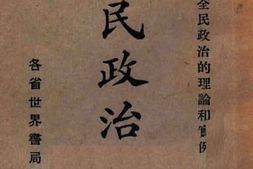 全民政治的理論和實例
民政治
各省世界書局